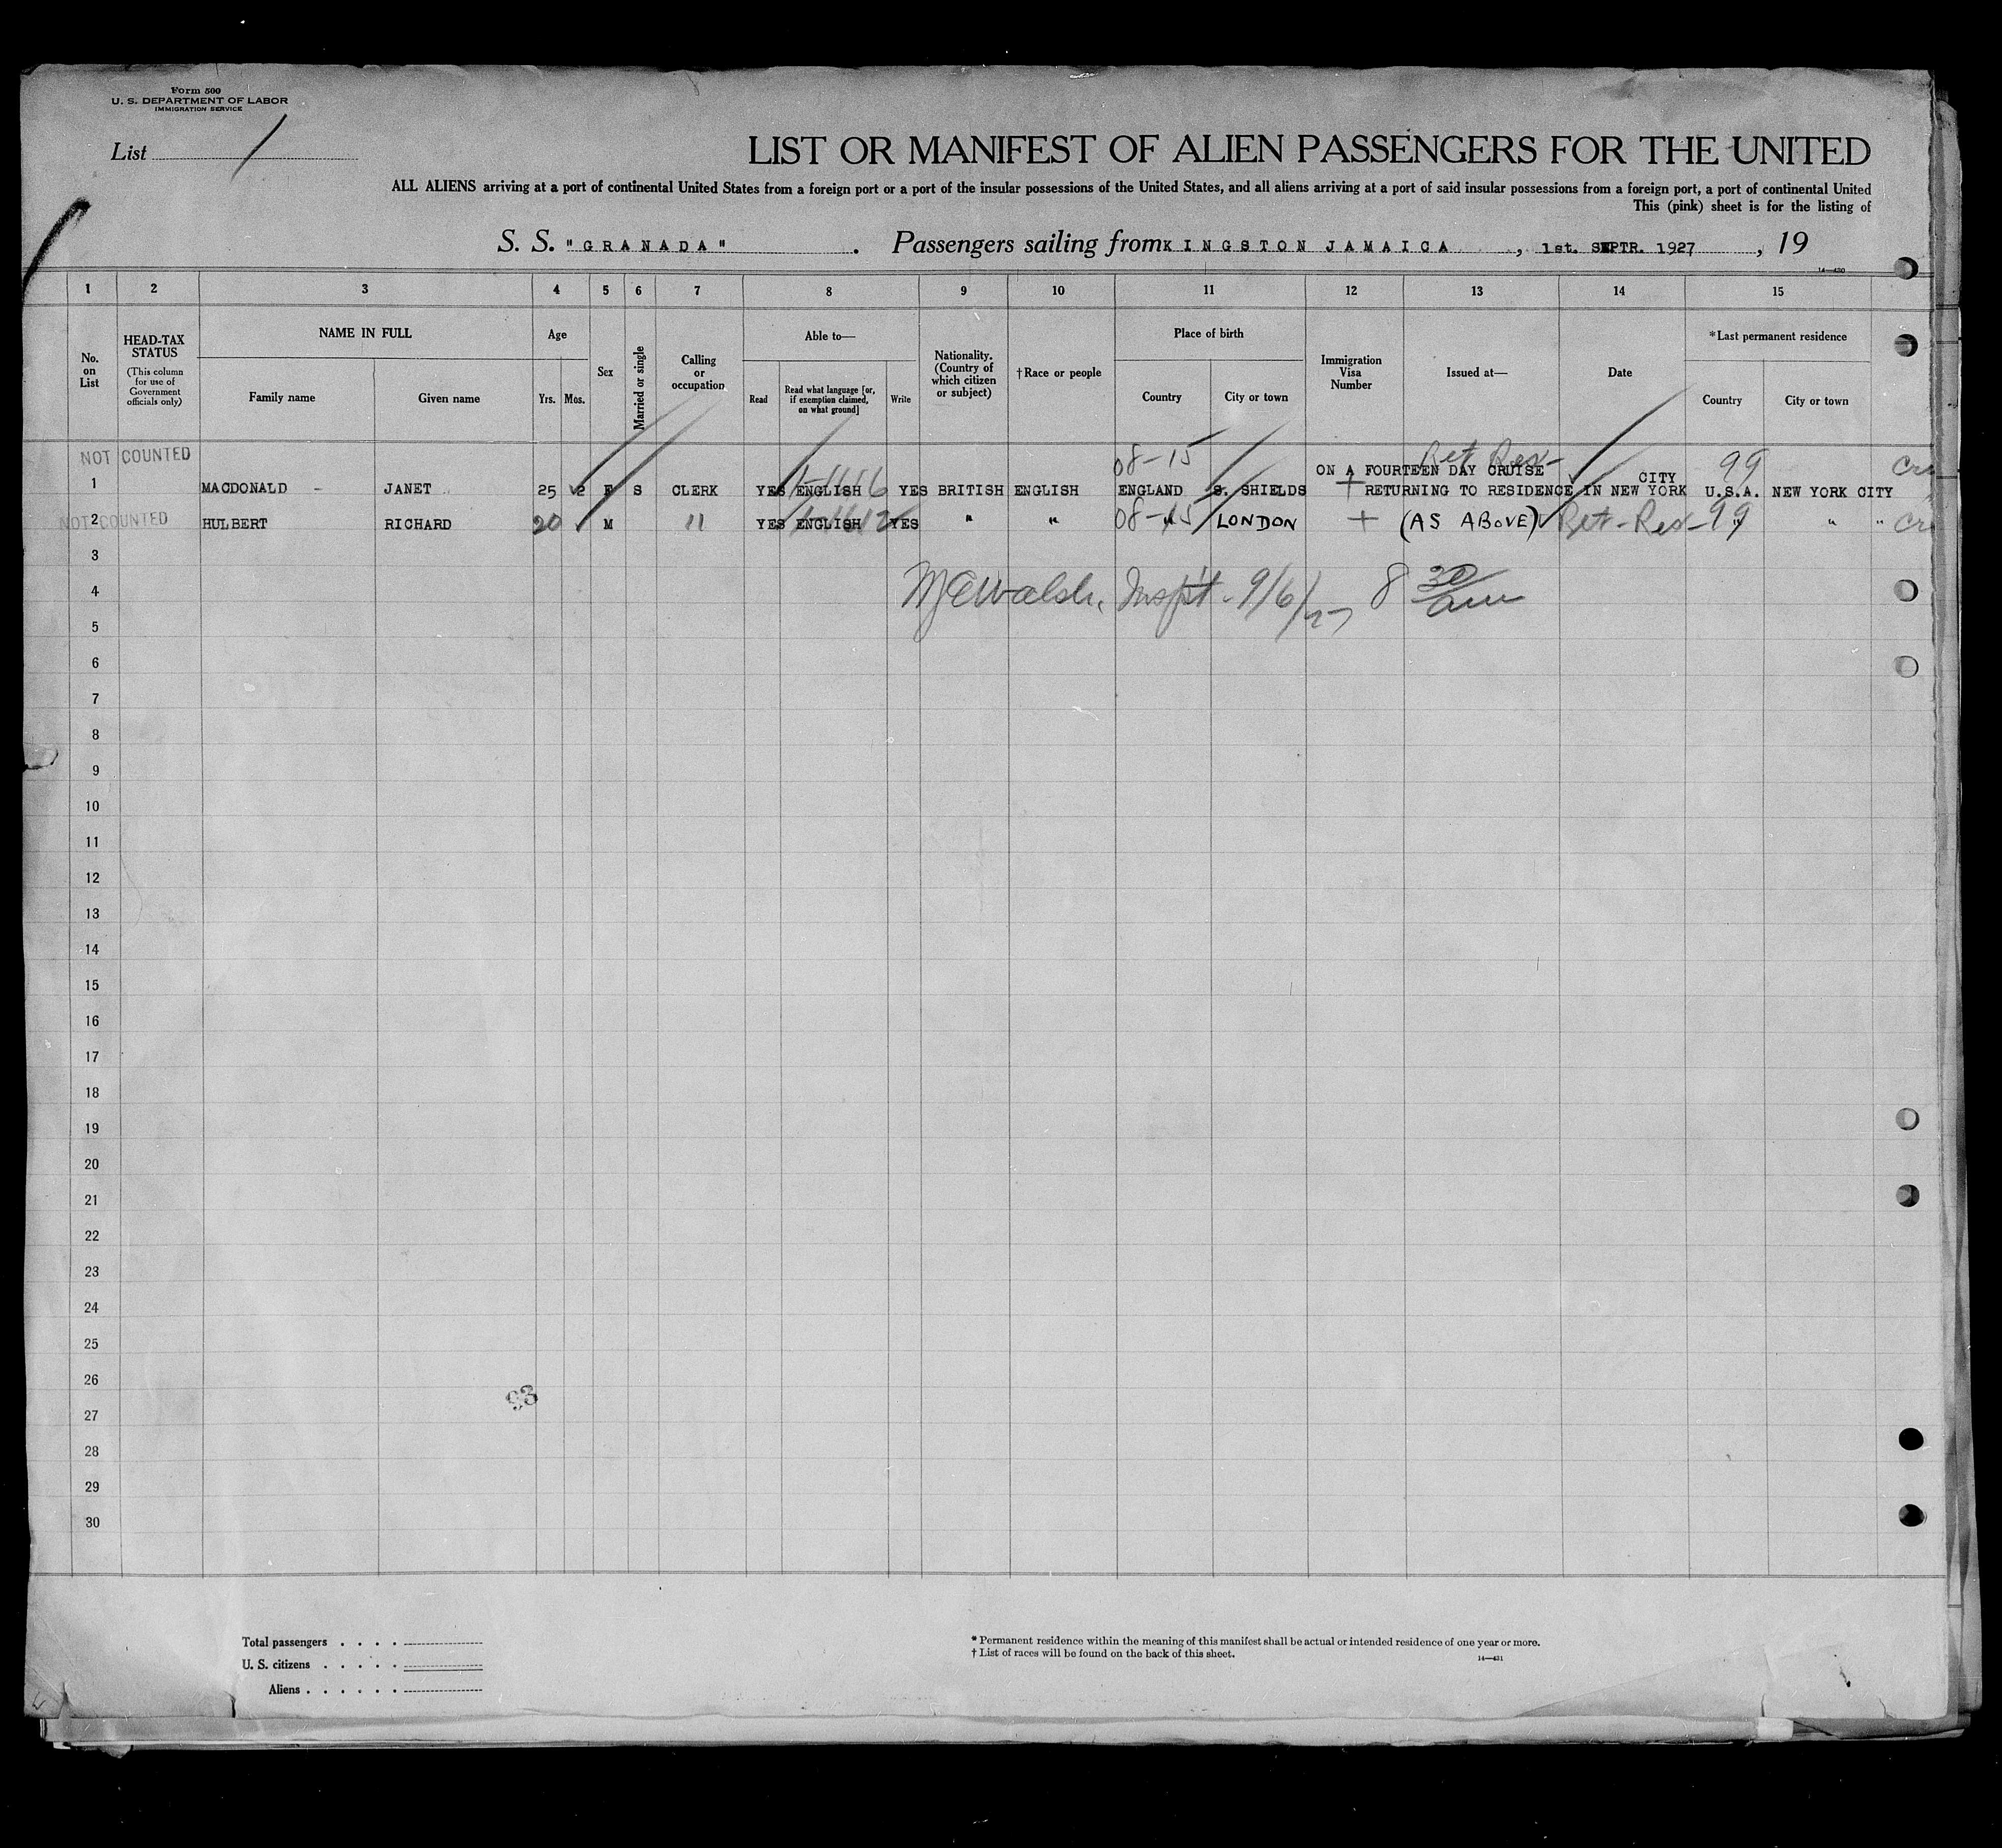 Form 500
U. S. DEPARTMENT OF LABOR
IMMIGRATION SERVICE
List 1
LIST OR MANIFEST OF ALIEN PASSENGERS FOR THE UNITED
ALL ALIENS arriving at a port of continental United States from a foreign port or a port of the insular possessions of the United States, and all aliens arriving at a port of said insular possessions from a foreign port, a port of continental United
This (pink) sheet is for the listing of
S. S. "GRANADA". Passengers sailing from KINGSTON JAMAICA, 1st. SEPTR. 1927, 19
14—430
1 2 3 4 5 6 7 8 9 10 11 12 13 14 15
No. on List
HEAD-TAX STATUS
(This column for use of Government officials only)
NAME IN FULL
Family name Given name
Age
Yrs. Mos.
Sex
Married or single
Calling or occupation
Able to—
Read
Read what language [or, if exemption claimed, on what ground]
Write
Nationality. (Country of which citizen or subject)
†Race or people
Place of birth
Country City or town
Immigration Visa Number
Issued at—
Date
*Last permanent residence
Country City or town
NOT COUNTED 08-15 Ret Res- 99
ON A FOURTEEN DAY CRUISE CITY
1 MACDONALD - JANET 25 2 F S CLERK YES ENGLISH YES BRITISH ENGLISH ENGLAND S. SHIELDS + RETURNING TO RESIDENCE IN NEW YORK U.S.A. NEW YORK CITY
NOT COUNTED
2 HULBERT RICHARD 20 M 11 YES ENGLISH YES " " 08-15 " LONDON + (AS ABOVE) Ret-Res- 99 " " "
3
4 Walsh, Insp't. 9/6/27 8 30 am
5
6
7
8
9
10
11
12
13
14
15
16
17
18
19
20
21
22
23
24
25
26
93
27
28
29
30
Total passengers . . . .
U. S. citizens . . . . .
Aliens . . . . . .
* Permanent residence within the meaning of this manifest shall be actual or intended residence of one year or more.
† List of races will be found on the back of this sheet.
14—431